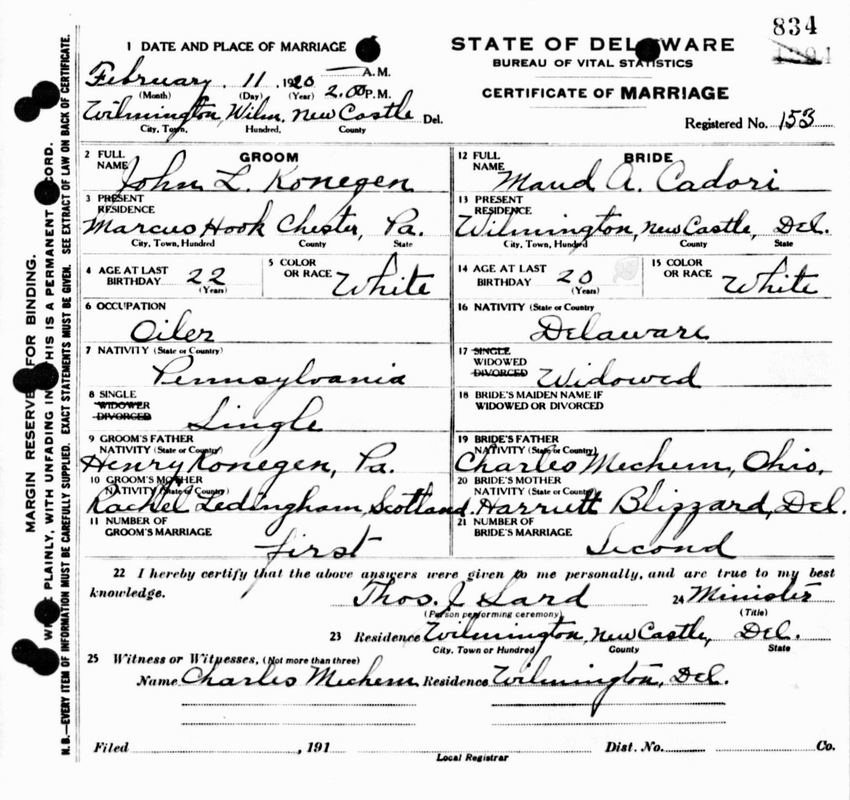 834
1 DATE AND PLACE OF MARRIAGE
STATE OF DELAWARE
BUREAU OF VITAL STATISTICS
CERTIFICATE OF MARRIAGE
Registered No. 153
February 11, 1920 A.M.
(Month) (Day) (Year) 2.00 P.M.
Wilmington, Wilm. New Castle Del.
City, Town, Hundred, County
GROOM
2 FULL NAME John L. Konegen
3 PRESENT RESIDENCE
Marcus Hook Chester, Pa.
City, Town, Hundred County State
4 AGE AT LAST BIRTHDAY 22 (Years) 5 COLOR OR RACE White
6 OCCUPATION
Oiler
7 NATIVITY (State or Country)
Pennsylvania
8 SINGLE
WIDOWER
DIVORCED
Single
9 GROOM'S FATHER
NATIVITY (State or Country)
Henry Konegen, Pa.
10 GROOM'S MOTHER
NATIVITY (State or Country)
Rachel Ledingham, Scotland.
11 NUMBER OF GROOM'S MARRIAGE
first
BRIDE
12 FULL NAME Maud A. Cadori
13 PRESENT RESIDENCE
Wilmington, New Castle, Del.
City, Town, Hundred County State
14 AGE AT LAST BIRTHDAY 20 (Years) 15 COLOR OR RACE White
16 NATIVITY (State or Country
Delaware
17 SINGLE
WIDOWED
DIVORCED Widowed
18 BRIDE'S MAIDEN NAME IF
WIDOWED OR DIVORCED
19 BRIDE'S FATHER
NATIVITY (State or Country)
Charles Mechem, Ohio,
20 BRIDE'S MOTHER
NATIVITY (State or Country)
Harriett Blizzard, Del.
21 NUMBER OF BRIDE'S MARRIAGE
Second
22 I hereby certify that the above answers were given to me personally, and are true to my best
knowledge.
Thos. J. Sard 24 Minister
(Person performing ceremony) (Title)
23 Residence Wilmington, New Castle, Del.
City, Town or Hundred County State
25 Witness or Witnesses, (Not more than three)
Name Charles Mechem Residence Wilmington, Del.
Filed , 191 Dist. No. Co.
Local Registrar
MARGIN RESERVED FOR BINDING.
PLAINLY, WITH UNFADING IN THIS IS A PERMANENT CORD.
N. B.—EVERY ITEM OF INFORMATION MUST BE CAREFULLY SUPPLIED. EXACT STATEMENTS MUST BE GIVEN. SEE EXTRACT OF LAW ON BACK OF CERTIFICATE.